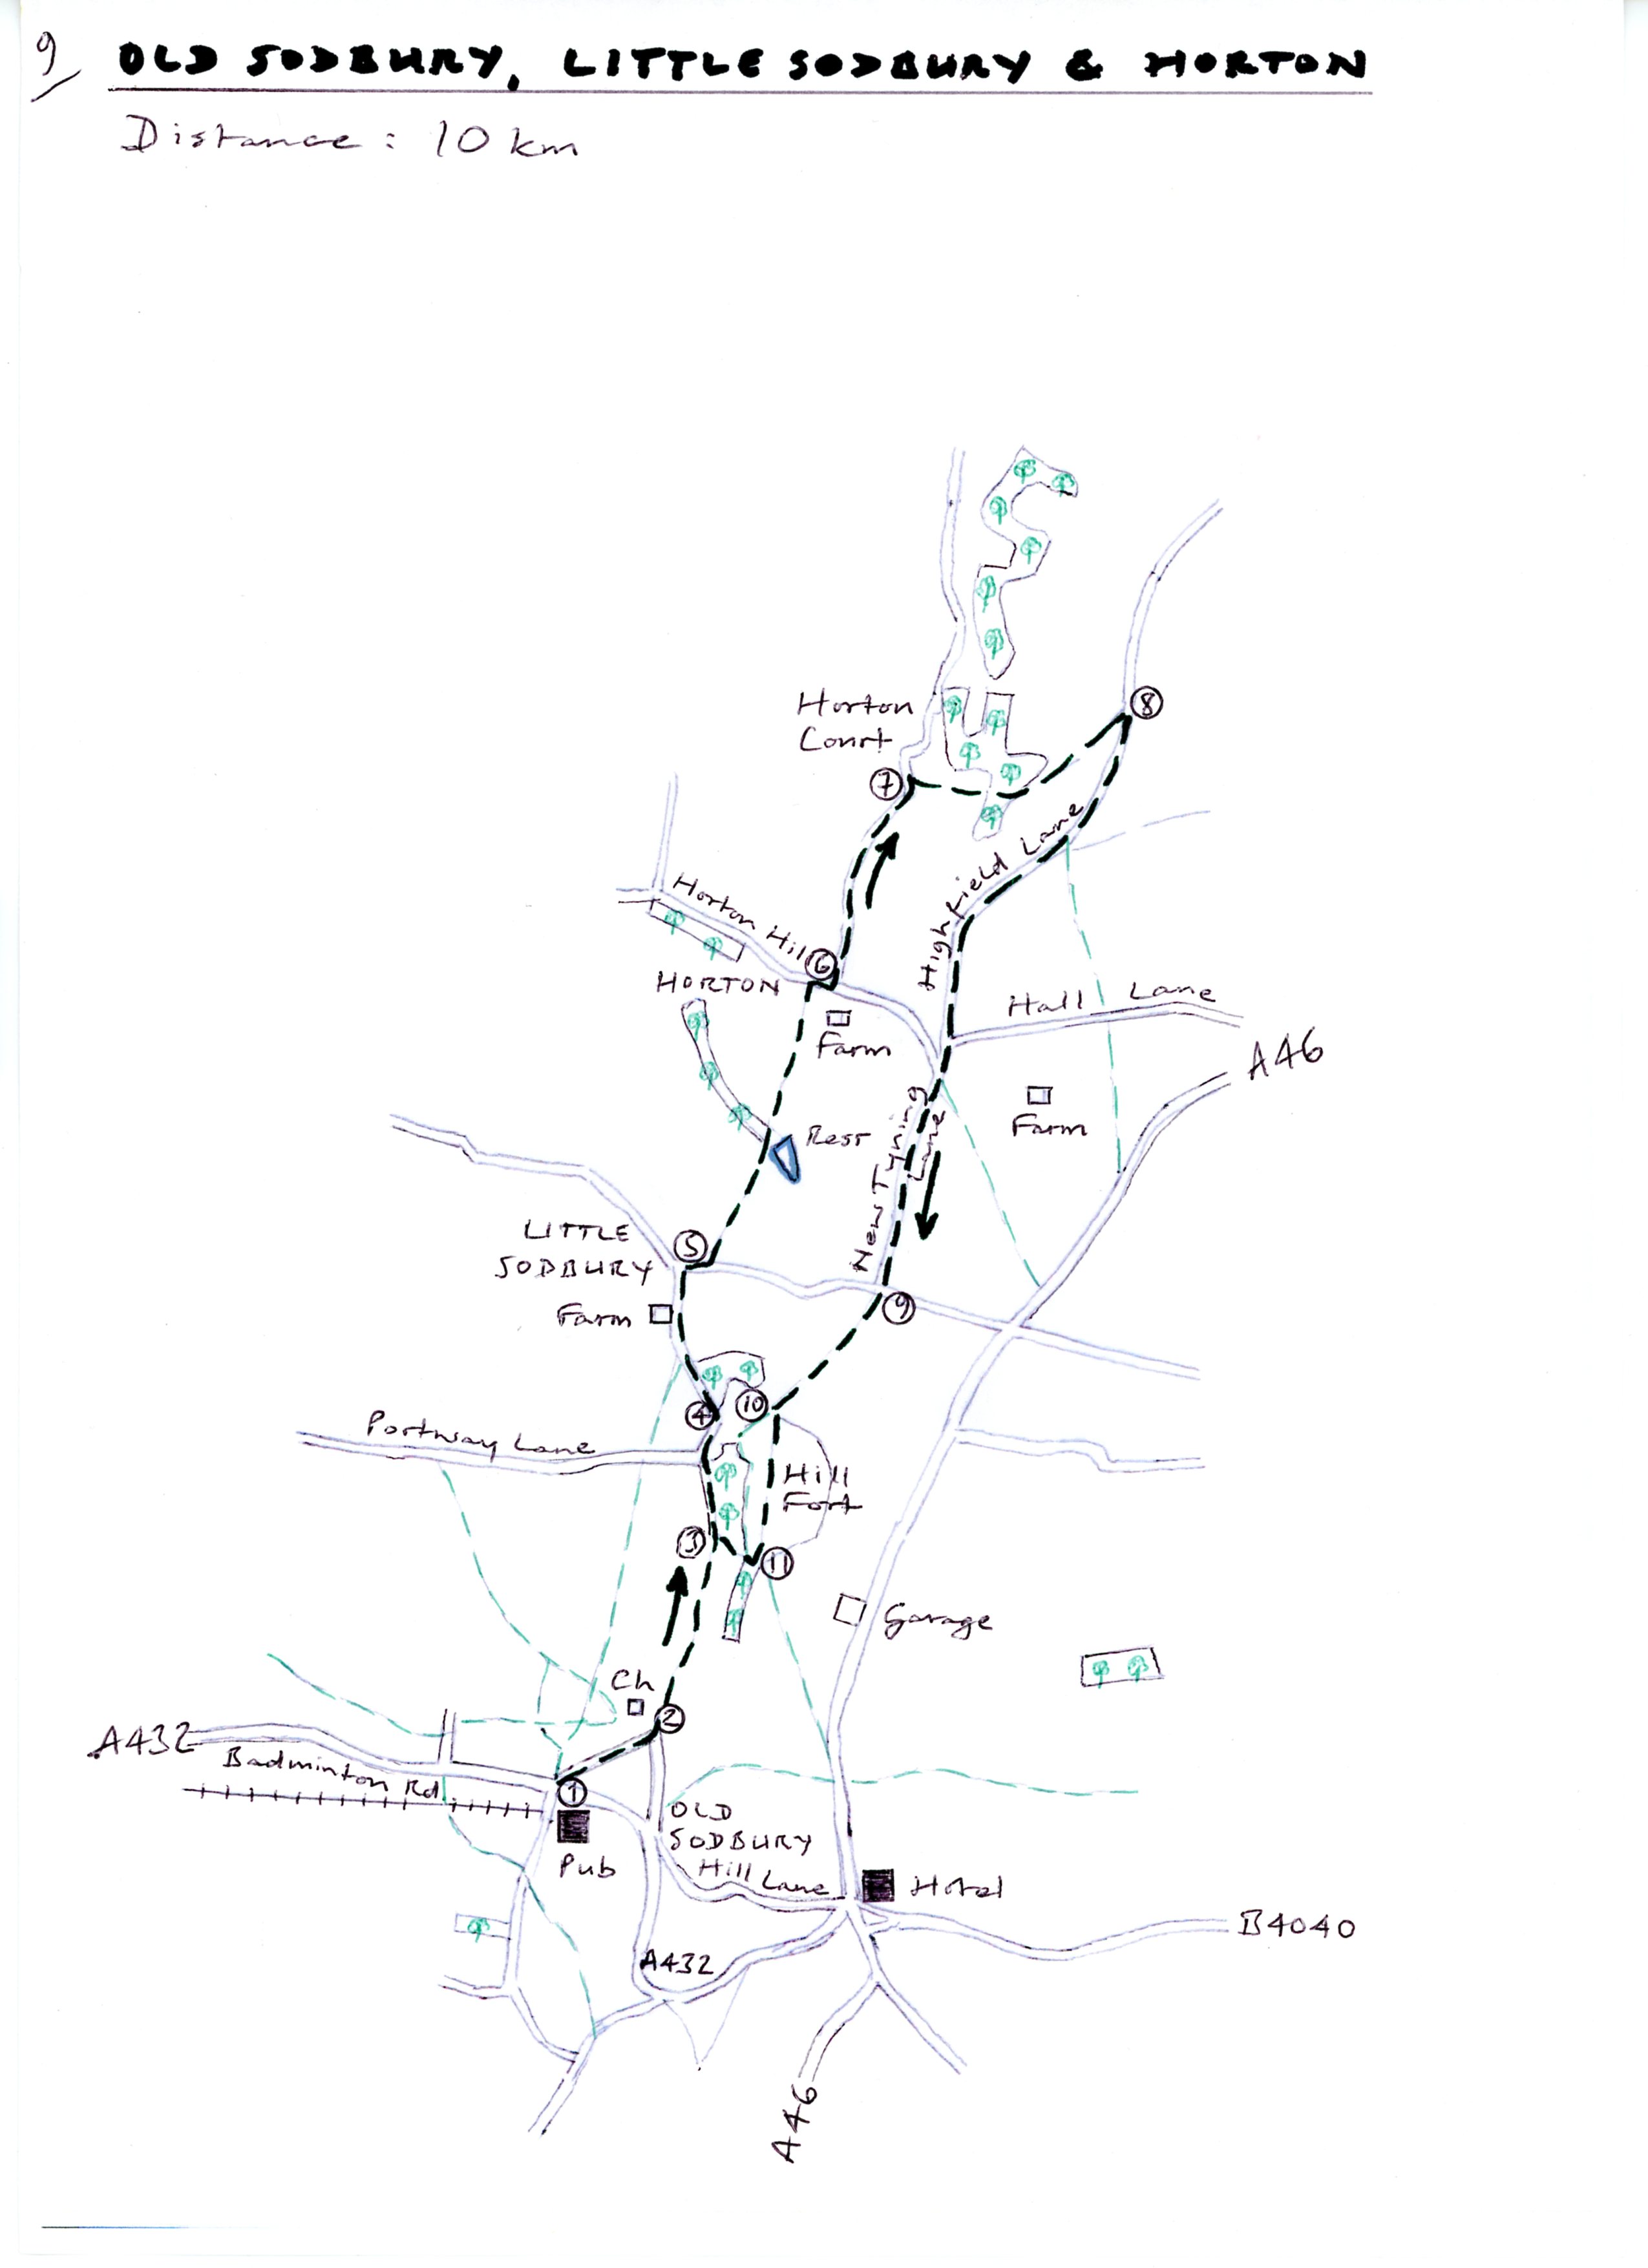 9/ OLD SODBURY, LITTLE SODBURY & HORTON
Distance: 10 km
8
Horton
Court
7
Highfield Lane
Horton Hill
6
HORTON
Hall Lane
Farm
A46
Farm
New Tyning
Lane
Resr
LITTLE
SODBURY
5
9
Farm
4
10
Portway Lane
Hill
Fort
3
11
Garage
Ch
2
A432
Badminton Rd
1
OLD
SODBURY
Pub
Hill Lane
Hotel
B4040
A432
A46